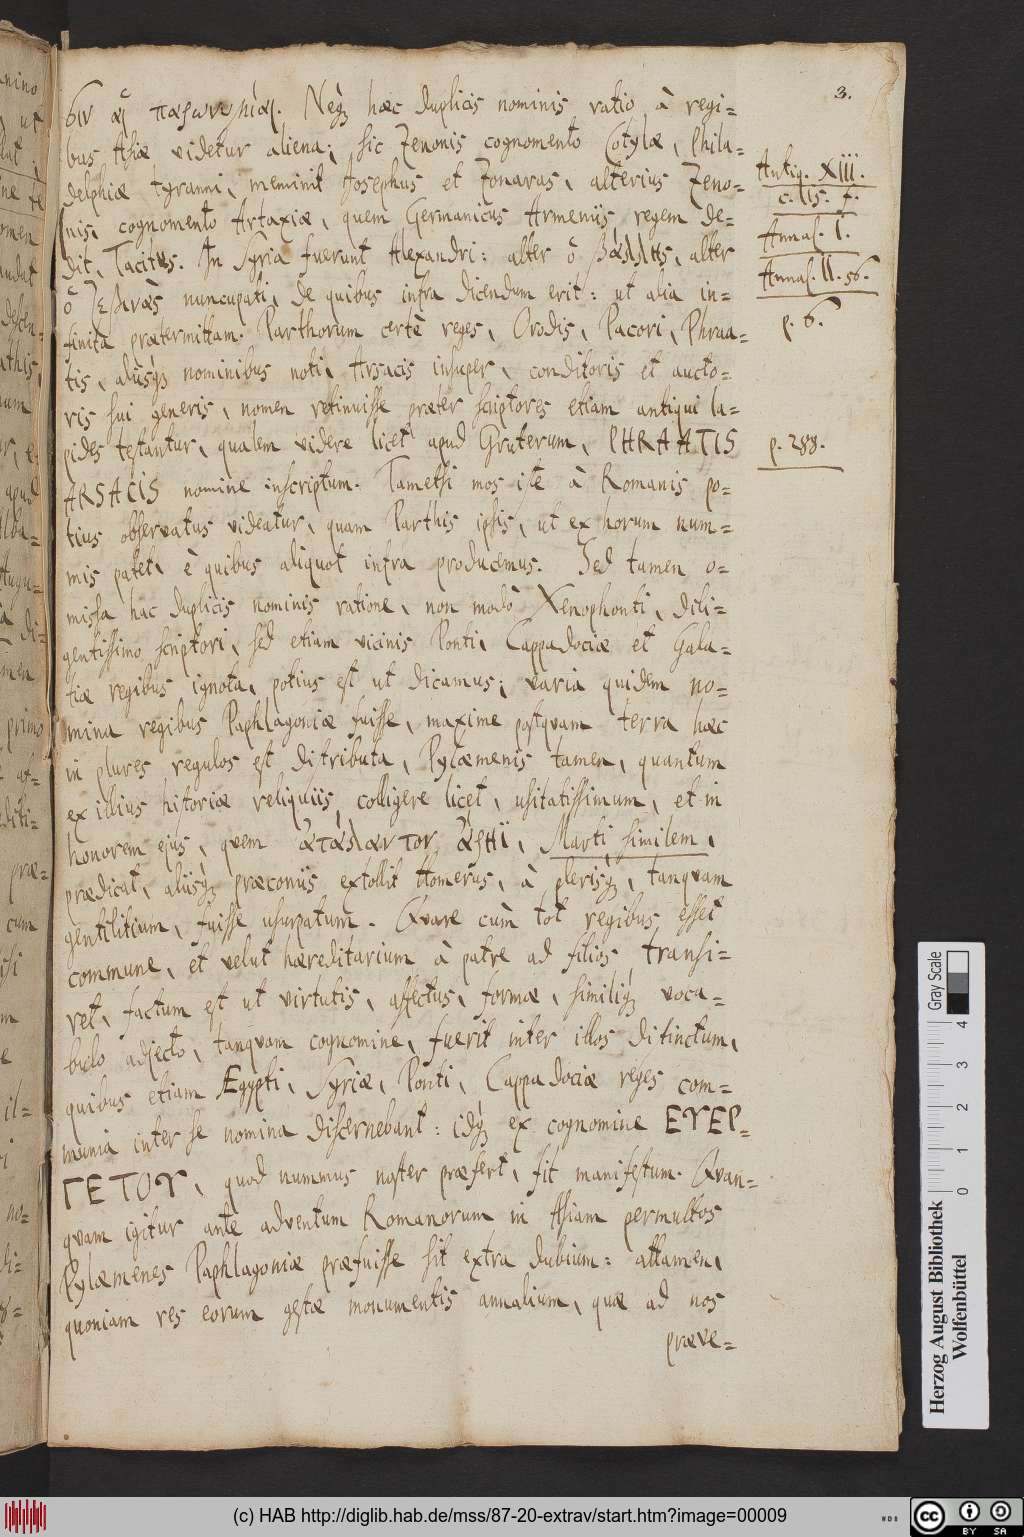 3.
σιν αἱ παρωνυμίαι. Neq; hæc duplicis nominis ratio à regi=
bus Asiæ videtur aliena; sic Zenonis cognomento Cotylæ, Phila=
delphiæ tyranni, meminit Josephus et Zonaras, alterius Zeno=
nis, cognomento Artaxiæ, quem Germanicus Armeniis regem de=
dit, Tacitus. In Syria fuerunt Alexandri: alter ὁ βάλλης, alter
ὁ ζεβινᾶς nuncupati, de quibus infra dicendum erit: ut alia in=
finita prætermittam. Parthorum certè reges, Orodis, Pacori, Phraa=
tis, aliisq; nominibus noti, Arsacis insuper, conditoris et aucto=
ris sui generis, nomen retinuisse præter scriptores etiam antiqui la=
pides testantur, qualem videre licet apud Gruterum, PHRAATIS
ARSACIS nomine inscriptum. Tametsi mos iste à Romanis po=
tius observatus videatur, quam Parthis ipsis, ut ex horum num=
mis patet, è quibus aliquot infra producemus. Sed tamen o=
missa hac duplicis nominis ratione, non modò Xenophonti, dili=
gentissimo scriptori, sed etiam vicinis Ponti, Cappadociæ et Gala=
tiæ regibus ignota, potius est ut dicamus; varia quidem no=
mina regibus Paphlagoniæ fuisse, maxime postquam terra hæc
in plures regulos est distributa, Pylæmenis tamen, quantum
ex illius historiæ reliquiis colligere licet, usitatissimum, et in
honorem ejus, quem ἀτάλαντον ἄρηϊ, Marti similem,
prædicat, aliisq; præconiis extollit Homerus, à plerisq;, tanquam
gentilitium, fuisse usurpatum. Quare cùm tot regibus esset
commune, et velut hæreditarium à patre ad filios transi=
ret, factum est ut virtutis, affectus, formæ, similiq; voca=
bulo adjecto, tanquam cognomine, fuerit inter illos distinctum,
quibus etiam Ægypti, Syriæ, Ponti, Cappadociæ reges com=
munia inter se nomina discernebant: idq; ex cognomine ΕΥΕΡ=
ΓΕΤΟΥ, quod nummus noster præfert, fit manifestum. Quan=
quam igitur ante adventum Romanorum in Asiam permultos
Pylæmenes Paphlagoniæ præfuisse sit extra dubium: attamen,
quoniam res eorum gestæ monumentis annalium, quæ ad nos
præve=
Antiq. XIII.
c. 15. f.
Annal. I.
Annal. II. 56.
p. 6.
p. 288.
Gray Scale
0 1 2 3 4
Herzog August Bibliothek
Wolfenbüttel
(c) HAB http://diglib.hab.de/mss/87-20-extrav/start.htm?image=00009
cc BY SA